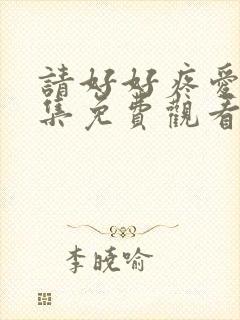 請好好疼愛
集免費觀看
李曉喻